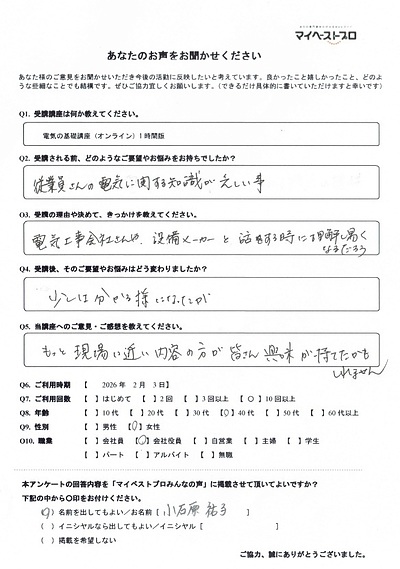 マイベストプロ
あなたのお声をお聞かせください
あなた様のご意見をお聞かせいただき今後の活動に反映したいと考えています。良かったこと嬉しかったこと、どのよ
うな些細なことでも結構です。ぜひご協力宜しくお願いします。（できるだけ具体的に書いていただけますと幸いです）
Q1. 受講講座は何か教えてください。
電気の基礎講座（オンライン）1時間版
Q2. 受講される前、どのようなご要望やお悩みをお持ちでしたか？
従業員さんの電気に関する知識が乏しい事
Q3. 受講の理由や決めて、きっかけを教えてください。
電気工事会社さんや、設備メーカーと話をする時に理解し易く
なるだろう
Q4. 受講後、そのご要望やお悩みはどう変わりましたか？
少しは分かる様になったが
Q5. 当講座へのご意見・ご感想を教えてください。
もっと現場に近い内容の方が皆さん興味が持てたかも
しれません
Q6. ご利用時期 【 2026年 2月 3日】
Q7. ご利用回数 【 】はじめて 【 】2回 【 】3回以上 【○】10回以上
Q8. 年齢 【 】10代 【 】20代 【 】30代 【○】40代 【 】50代 【 】60代以上
Q9. 性別 【 】男性 【○】女性
Q10. 職業 【 】会社員 【○】会社役員 【 】自営業 【 】主婦 【 】学生
【 】パート 【 】アルバイト 【 】無職
本アンケートの回答内容を「マイベストプロみんなの声」に掲載させて頂いてよいですか？
下記の中から〇印をお付けください。
(○) 名前を出してもよい／お名前 [小石原 ]
( ) イニシャルなら出してもよい／イニシャル [ ]
( ) 掲載を希望しない
ご協力、誠にありがとうございました。